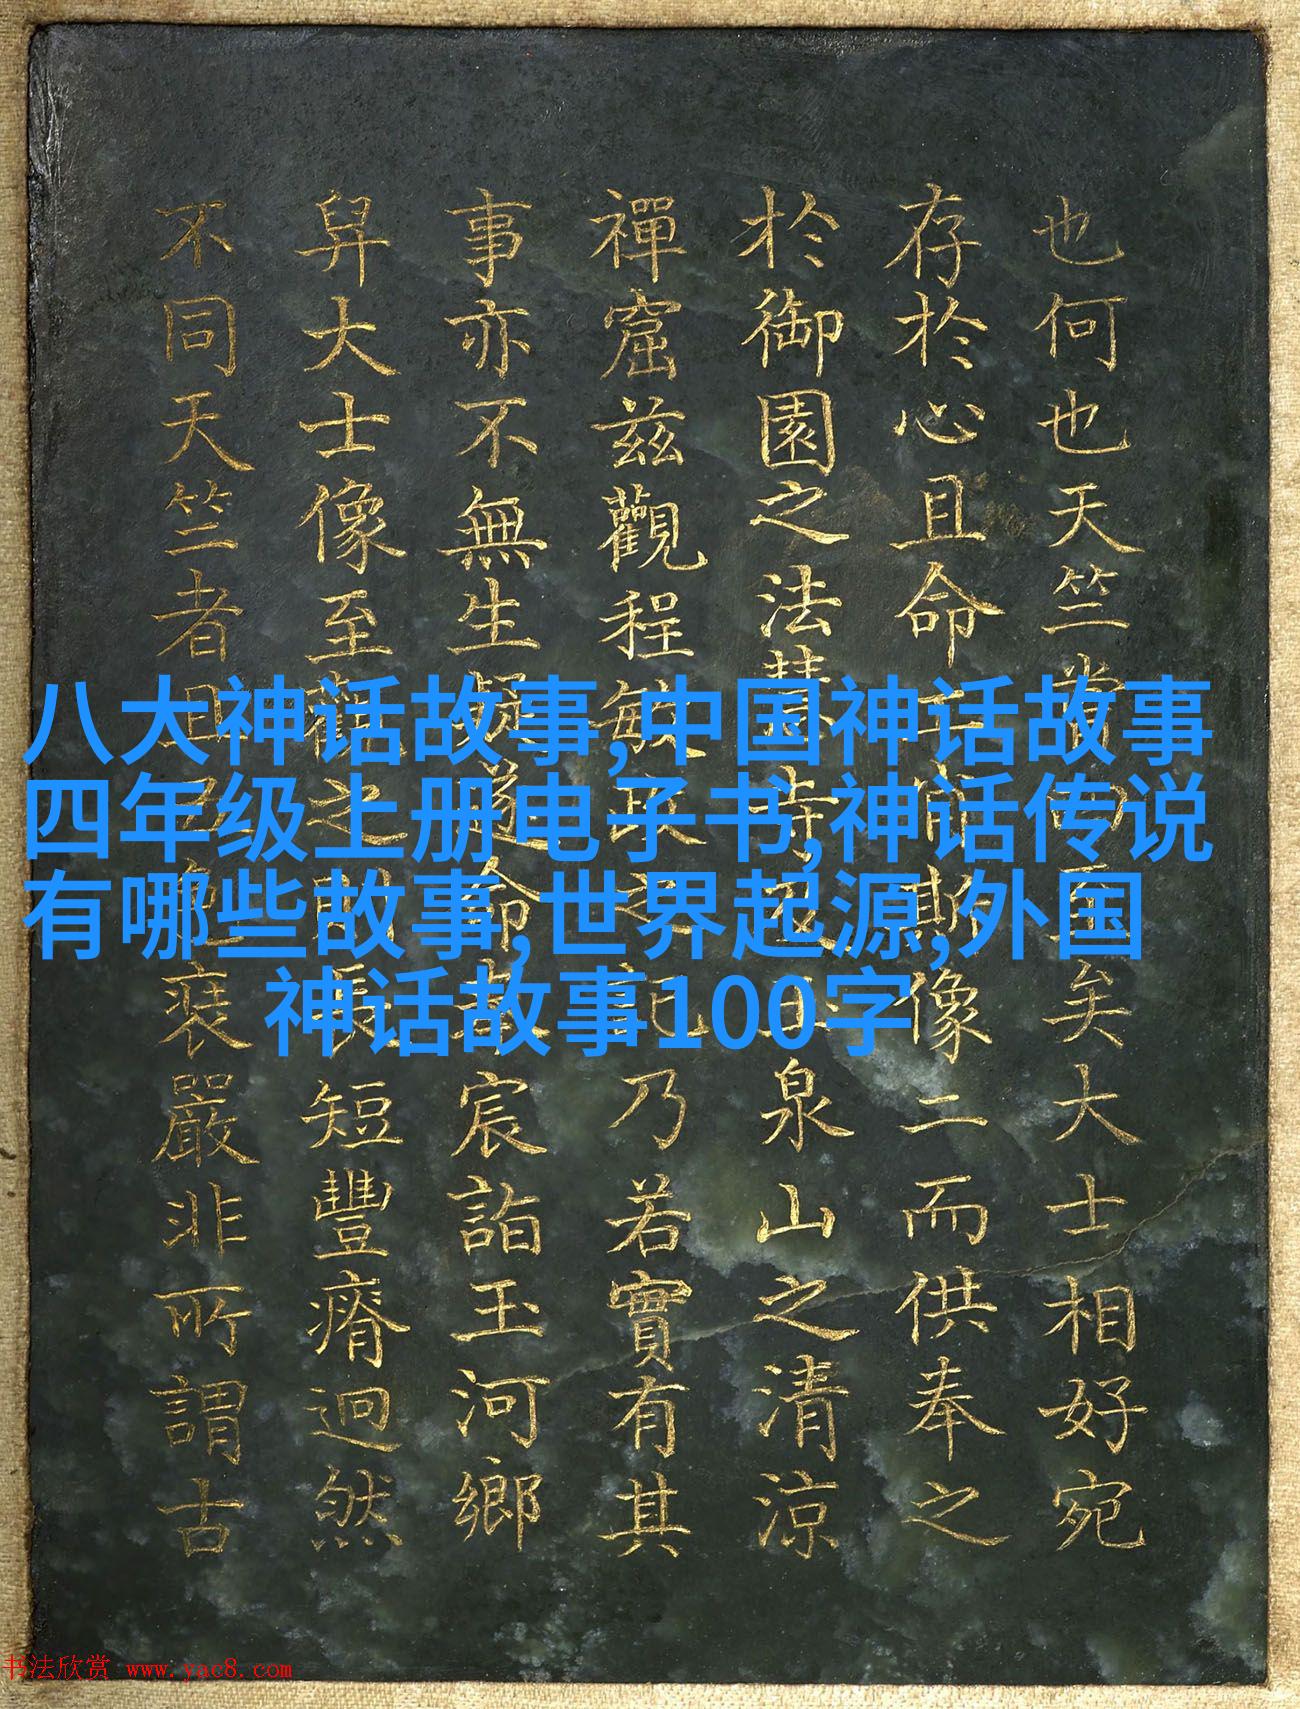 也何也天竺矣大士相好宛
存於心且命像二而供奉之
於御園之法慧寺及玉泉山之清涼
禪窟茲觀程敏政之記乃若實有其
事亦不無生疑遂命宸詣玉河鄉
舁大士像至觀之短豐瘠迥然
不同天竺者且裝嚴非所謂古
八大神话故事,中国神话故事
四年级上册电子书,神话传说
有哪些故事,世界起源,外国
神话故事100字
书法欣赏 www.yac8.com